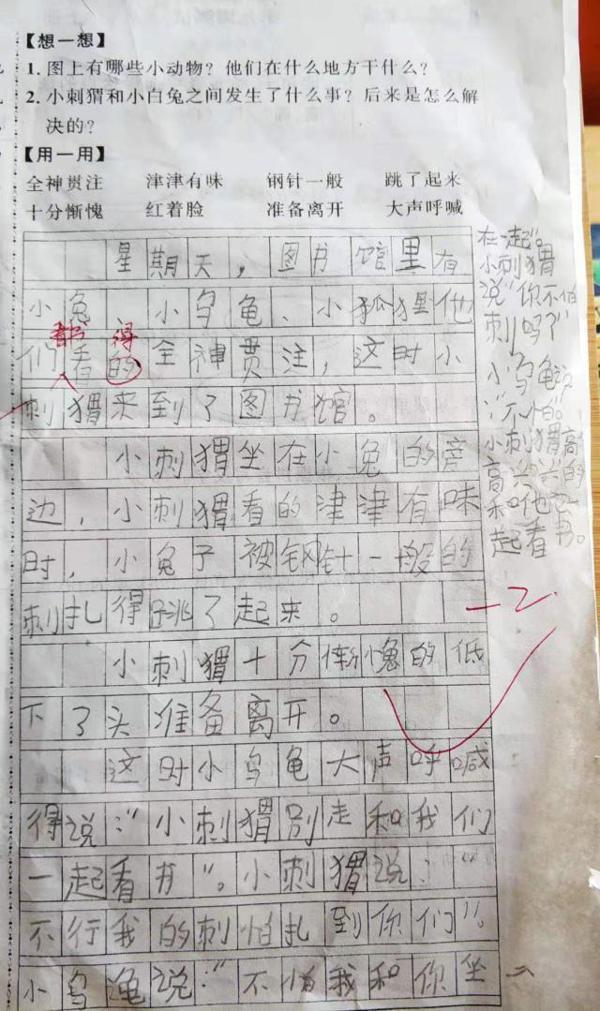 【想一想】
1. 图上有哪些小动物？他们在什么地方干什么？
2. 小刺猬和小白兔之间发生了什么事？后来是怎么解
决的？
【用一用】
全神贯注 津津有味 钢针一般 跳了起来
十分惭愧 红着脸 准备离开 大声呼喊
星期天，图书馆里有
小兔、小乌龟、小狐狸他
都 得
们看的全神贯注，这时小
刺猬来到了图书馆。
小刺猬坐在小兔的旁
边，小刺猬看的津津有味
时，小兔子被钢针一般的
刺扎得跳了起来。
-2
小刺猬十分惭愧的低
下了头准备离开。
这时小乌龟大声呼喊
得说："小刺猬别走和我们
一起看书"。小刺猬说："
不行我的刺怕扎到你们"。
小乌龟说："不怕我和你坐
在一起"。
小刺猬
说"你不怕
刺吗？"
小乌龟说
："不怕"。
小刺猬高
高兴兴的
和他一
起看书。